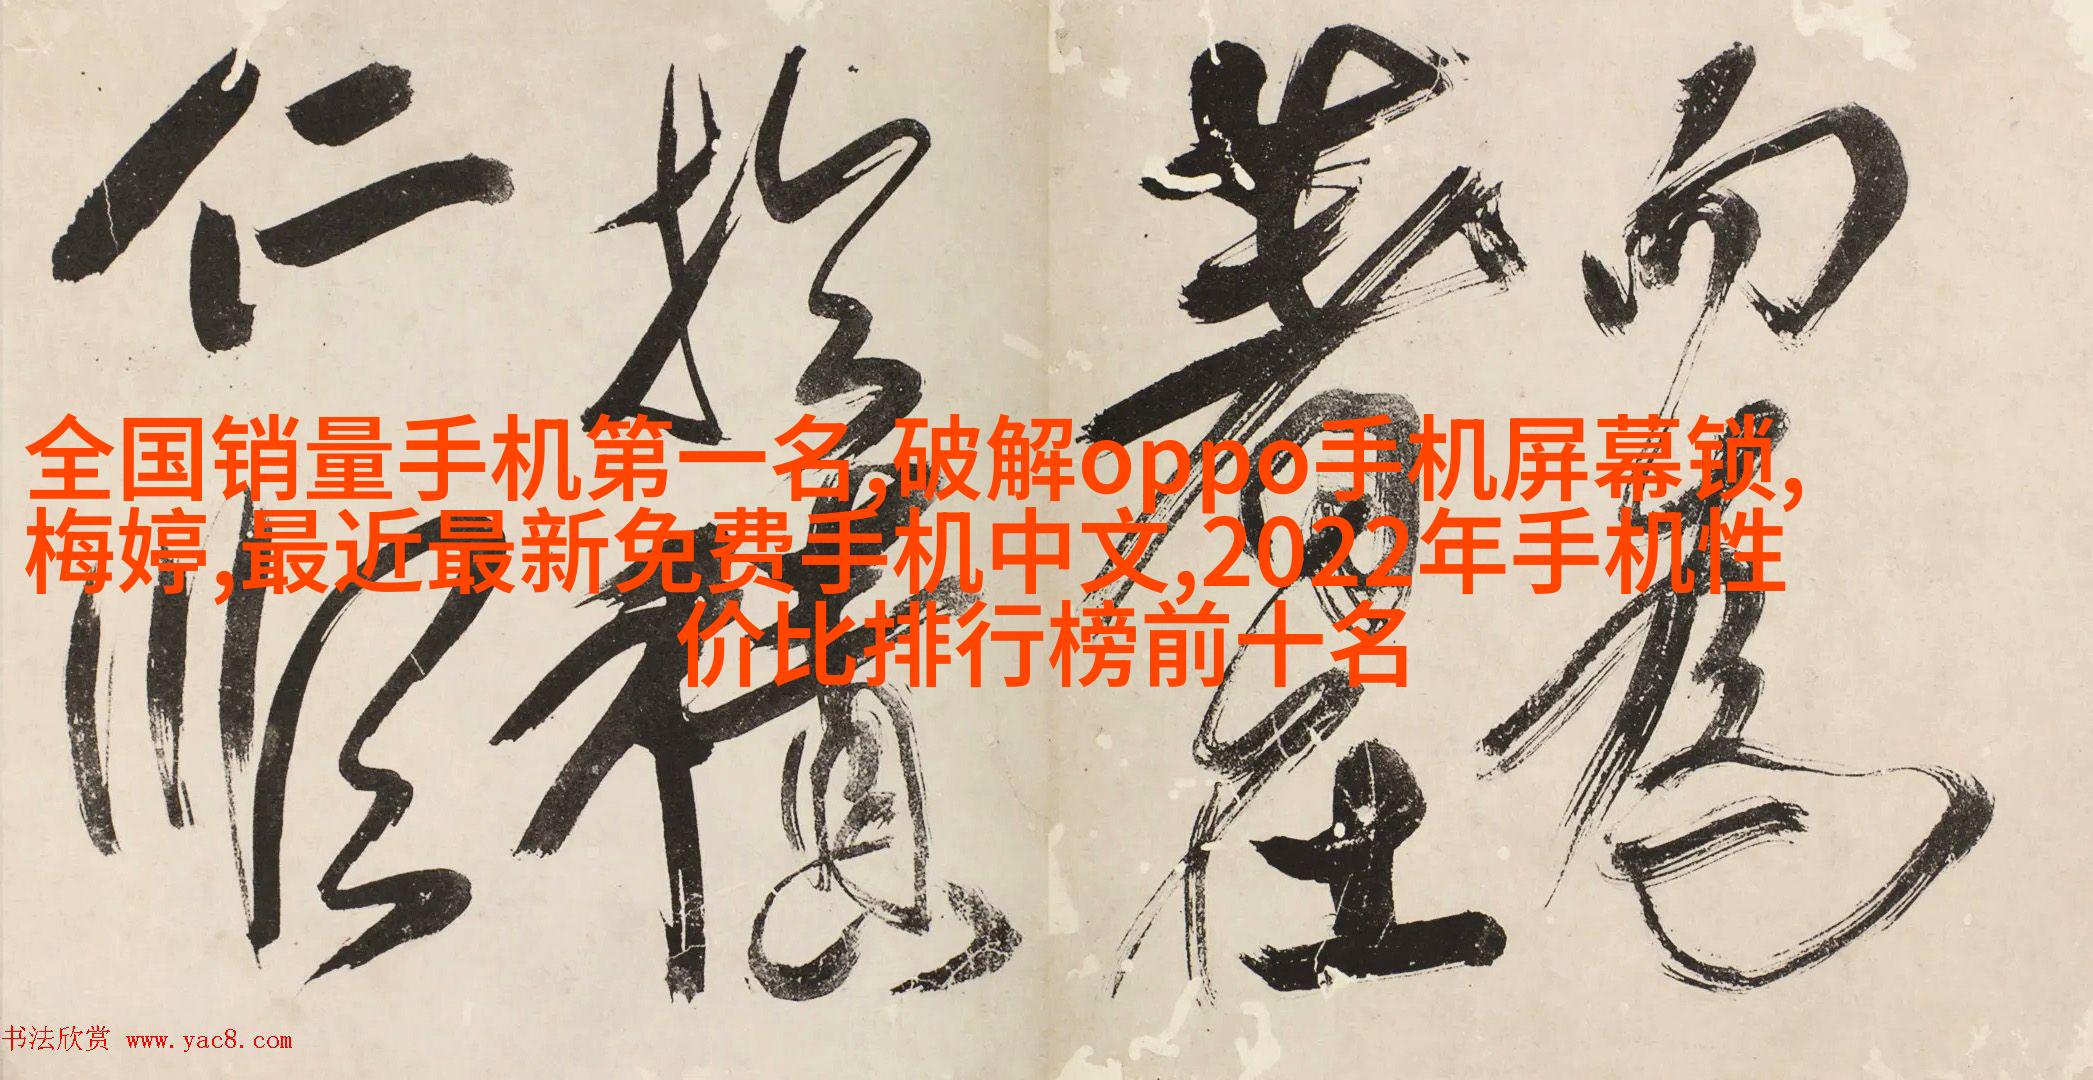 而為
在
於
仁順
全国销量手机第一名,破解oppo手机屏幕锁,
梅婷,最近最新免费手机中文,2022年手机性
价比排行榜前十名
书法欣赏 www.yac8.com